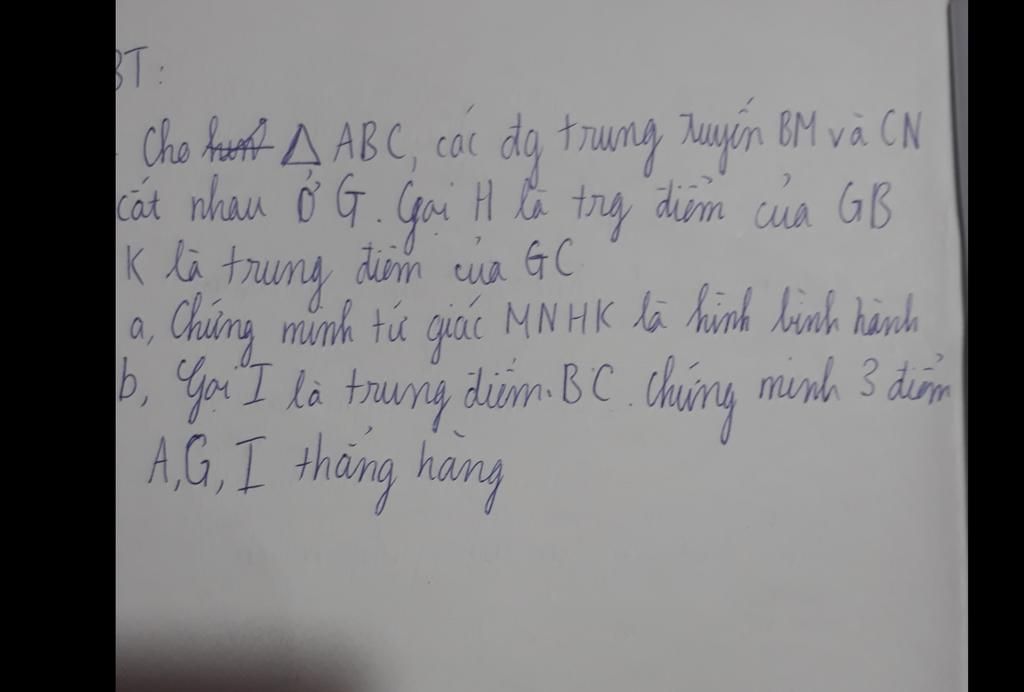 BT:
Cho △ ABC, các đg trung tuyến BM và CN
cắt nhau ở G. Gọi H là trg điểm của GB
K là trung điểm của GC
a, Chứng minh tứ giác MNHK là hình bình hành
b, Gọi I là trung điểm BC. Chứng minh 3 điểm
A, G, I thẳng hàng